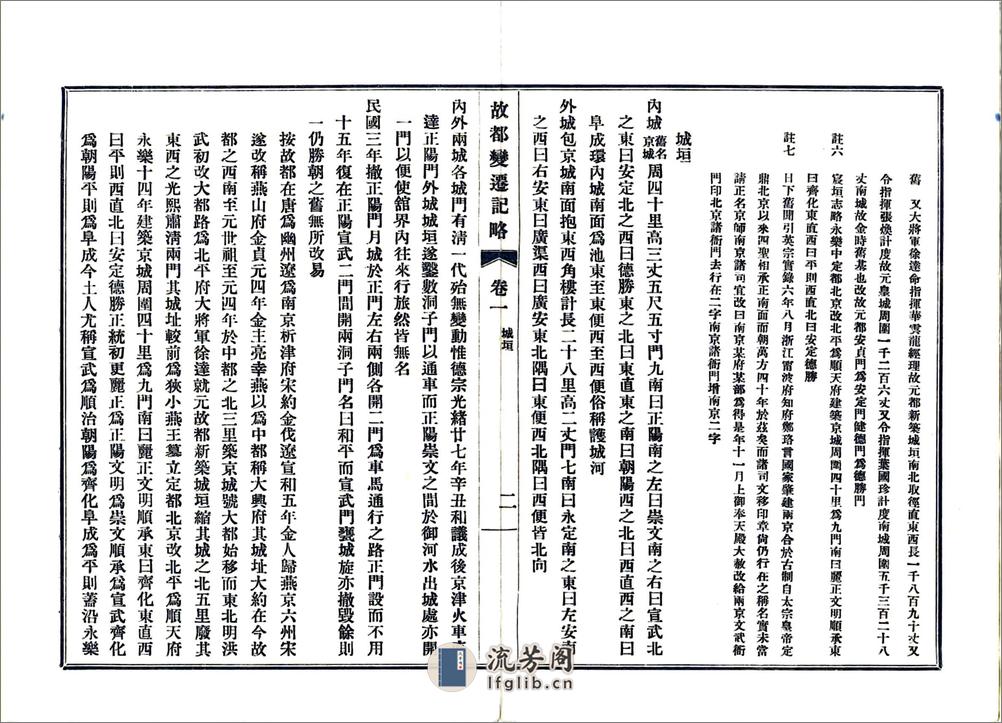 舊　又大將軍徐達命指揮華雲龍經理故元都新築城垣南北取徑直東西長一千八百九十丈又
令指揮張煥計度故元皇城周圍一千二百六丈又令指揮葉國珍計度南城周圍五千三百二十八
丈南城故金時舊基也改故元都安貞門爲安定門健德門爲德勝門
註六　宸垣志略永樂中定都北京改北平爲順天府建築京城周圍四十里爲九門南曰麗正文明順承東
曰齊化東直西曰平則西直北曰安定德勝
註七　日下舊聞引英宗實錄六年八月浙江甯波府知府鄭珞言國家肇建兩京合於古制自太宗皇帝定
鼎北京以來四聖相承正南面而朝萬方四十年於茲矣而諸司文移印章尙仍行在之稱名實未當
請正名京師南京諸司宜改曰南京某府某部爲得是年十一月上御奉天殿大赦改給兩京文武衙
門印北京諸衙門去行在二字南京諸衙門增南京二字
城垣
內城舊名京城周四十里高三丈五尺五寸門九南曰正陽南之左曰崇文南之右曰宣武北
之東曰安定北之西曰德勝東之北曰東直東之南曰朝陽西之北曰西直西之南曰
阜成環內城南面爲池東至東便西至西便俗稱護城河
外城包京城南面抱東西角樓計長二十八里高二丈門七南曰永定南之東曰左安南
之西曰右安東曰廣渠西曰廣安東北隅曰東便西北隅曰西便皆北向
故都變遷記略　卷一　城垣　二
內外兩城各城門有淸一代殆無變動惟德宗光緒廿七年辛丑和議成後京津火車
達正陽門外城城垣遂鑿數洞子門以通車而正陽崇文之間於御河水出城處亦開
一門以便使館界內往來行旅然皆無名
民國三年撤正陽門月城於正門左右兩側各開二門爲車馬通行之路正門設而不用
十五年復在正陽宣武二門間開兩洞子門名曰和平而宣武門甕城旋亦撤毀餘則
一仍勝朝之舊無所改易
按故都在唐爲幽州遼爲南京析津府宋約金伐遼宣和五年金人歸燕京六州宋
遂改稱燕山府金貞元四年金主亮幸燕以爲中都稱大興府其城址大約在今故
都之西南至元世祖至元四年於中都之北三里築京城號大都始移而東北明洪
武初改大都路爲北平府大將軍徐達就元故都新築城垣縮其城之北五里廢其
東西之光熙肅淸兩門其城址較前爲狹小燕王篡立定都北京改北平爲順天府
永樂十四年建築京城周圍四十里爲九門南曰麗正文明順承東曰齊化東直西
曰平則西直北曰安定德勝正統初更麗正爲正陽文明爲崇文順承爲宣武齊化
爲朝陽平則爲阜成今土人尤稱宣武爲順治朝陽爲齊化阜成爲平則蓋沿永樂
流芳阁
lfglib.cn